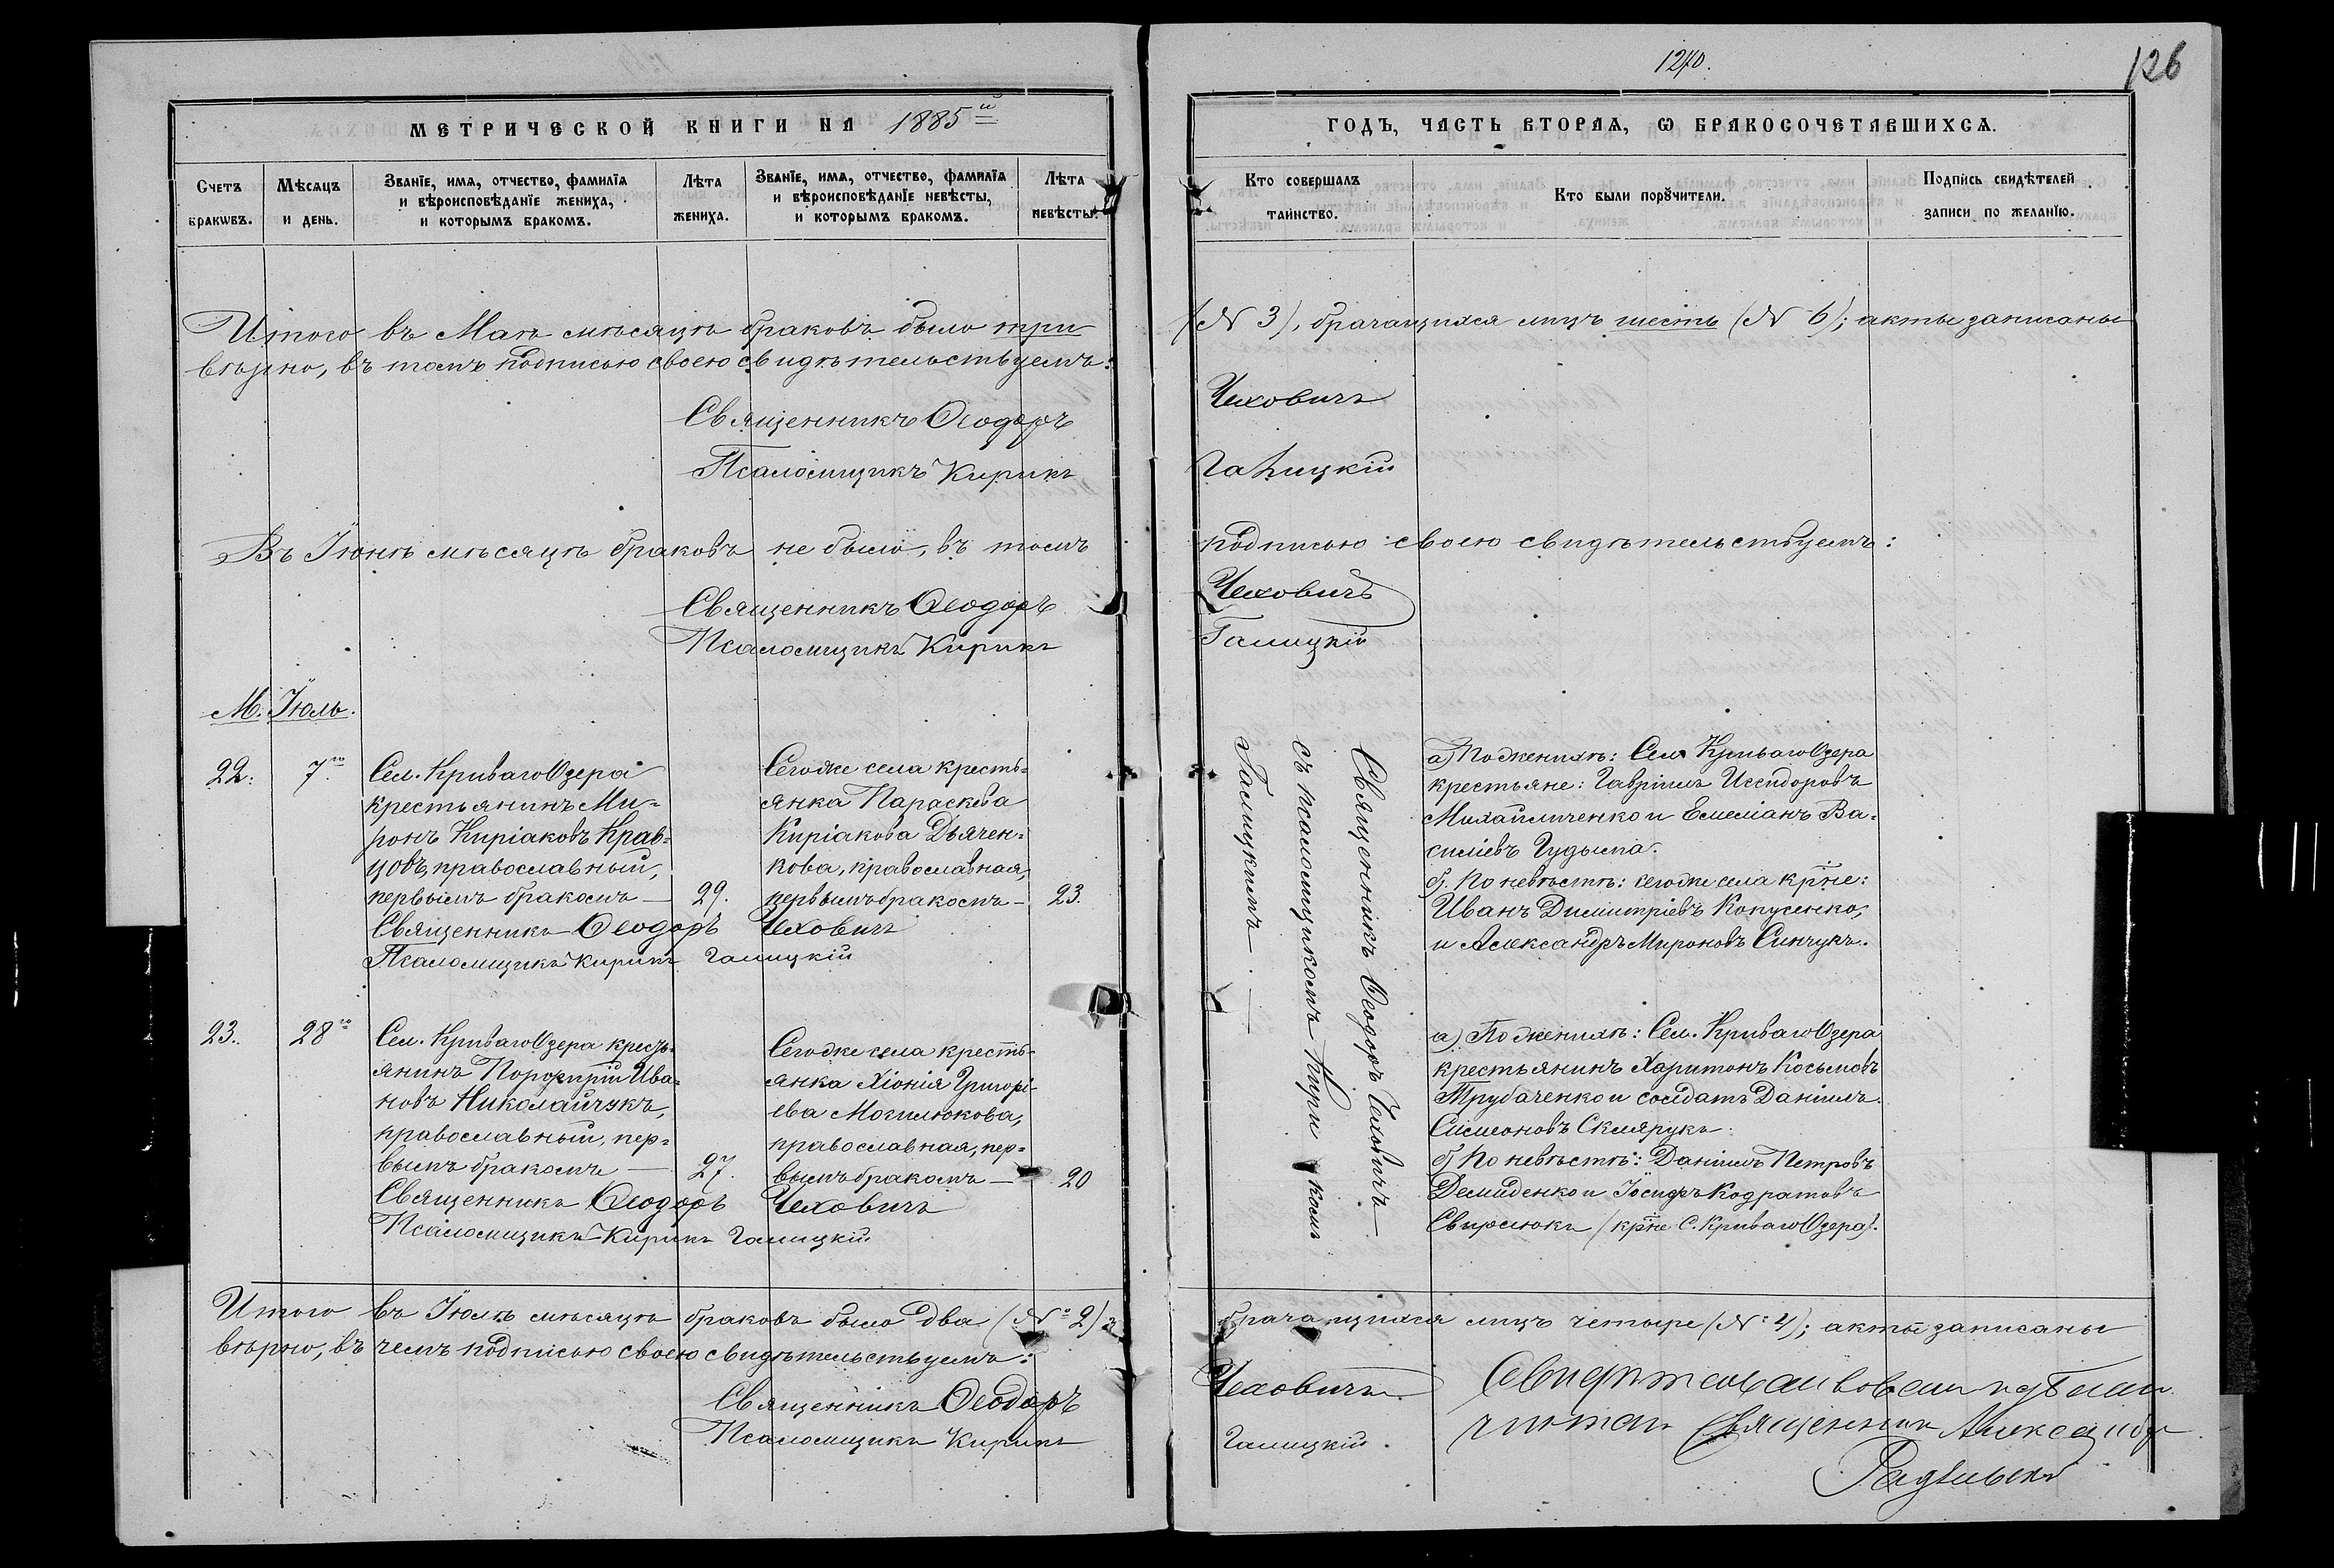 1270.
126
МЕТРИЧЕСКОЙ КНИГИ НА 1885й
ГОДЪ, ЧАСТЬ ВТОРАѦ, Ѡ БРАКОСОЧЕТАВШИХСѦ.
Счетъ браковъ.
Мѣсяцъ и день.
Званїе, имѧ, отчество, фамилїѧ
и вѣроисповѣданїе жениха,
и которымъ бракомъ.
Лѣта жениха.
Званїе, имѧ, отчество, фамилїѧ
и вѣроисповѣданїе невѣсты,
и которымъ бракомъ.
Лѣта невѣсты.
Кто совершалъ
таинство.
Кто были порꙋчители.
Подпись свидѣтелей
записи по желанїю.
Итого въ Маѣ мѣсяцѣ браковъ было три (N 3), брачащихся лицъ шесть (N 6); акты записаны
вѣрно, въ томъ подписью своею свидѣтельствуемъ:
Священникъ Ѳеодоръ Чеховичъ
Псаломщикъ Кирикъ Галицкій
Въ Іюнѣ мѣсяцѣ браковъ не было, въ томъ подписью своею свидѣтельствуемъ:
Священникъ Ѳеодоръ Чеховичъ
Псаломщикъ Кирикъ Галицкій
М. Іюль.
22. 7го
Сел. Криваго Озера
крестьянинъ Ми=
ронъ Киріаковъ Крав=
цовъ, православный,
первымъ бракомъ — 29.
Тогоже села кресть=
янка Параскева
Киріакова Дьячен=
кова, православная,
первымъ бракомъ — 23.
Священникъ Ѳеодоръ Чеховичъ
Псаломщикъ Кирикъ Галицкій
Священникъ Ѳеодоръ Чеховичъ
съ псаломщикомъ Кирикомъ
Галицкимъ.
а) По женихѣ: Села Криваго Озера
крестьяне: Гавріилъ Исидоровъ
Михайличенко и Емеліанъ Ва=
силіевъ Гудыма.
б. По невѣстѣ: тогоже села кр̃не:
Иванъ Димитріевъ Кокусенко,
и Александръ Мироновъ Синчукъ.
23. 28го
Сел. Криваго Озера кресть
янинъ Порфирій Ива=
новъ Николайчукъ,
православный, пер=
вымъ бракомъ — 27.
Тогоже села кресть=
янка Хіонія Григорі-
ева Могилюкова,
православная, пер=
вымъ бракомъ — 20
Священникъ Ѳеодоръ Чеховичъ
Псаломщикъ Кирикъ Галицкій
а) По женихѣ: Сел. Криваго Озера
крестьянинъ Харитонъ Косьмовъ
Трубаченко и солдатъ Даніилъ
Симеоновъ Склярукъ.
б) По невѣстѣ: Даніилъ Петровъ
Демиденко и Іосифъ Кодратовъ
Свирлюкъ (кр̃не С. Криваго Озера).
Итого въ Іюлѣ мѣсяцѣ браковъ было два (№ 2), брачащихся лицъ четыре (№ 4); акты записаны
вѣрно, въ чемъ подписью своею свидѣтельствуемъ:
Священникъ Ѳеодоръ Чеховичъ
Псаломщикъ Кирикъ Галицкій.
Священникъ Александръ